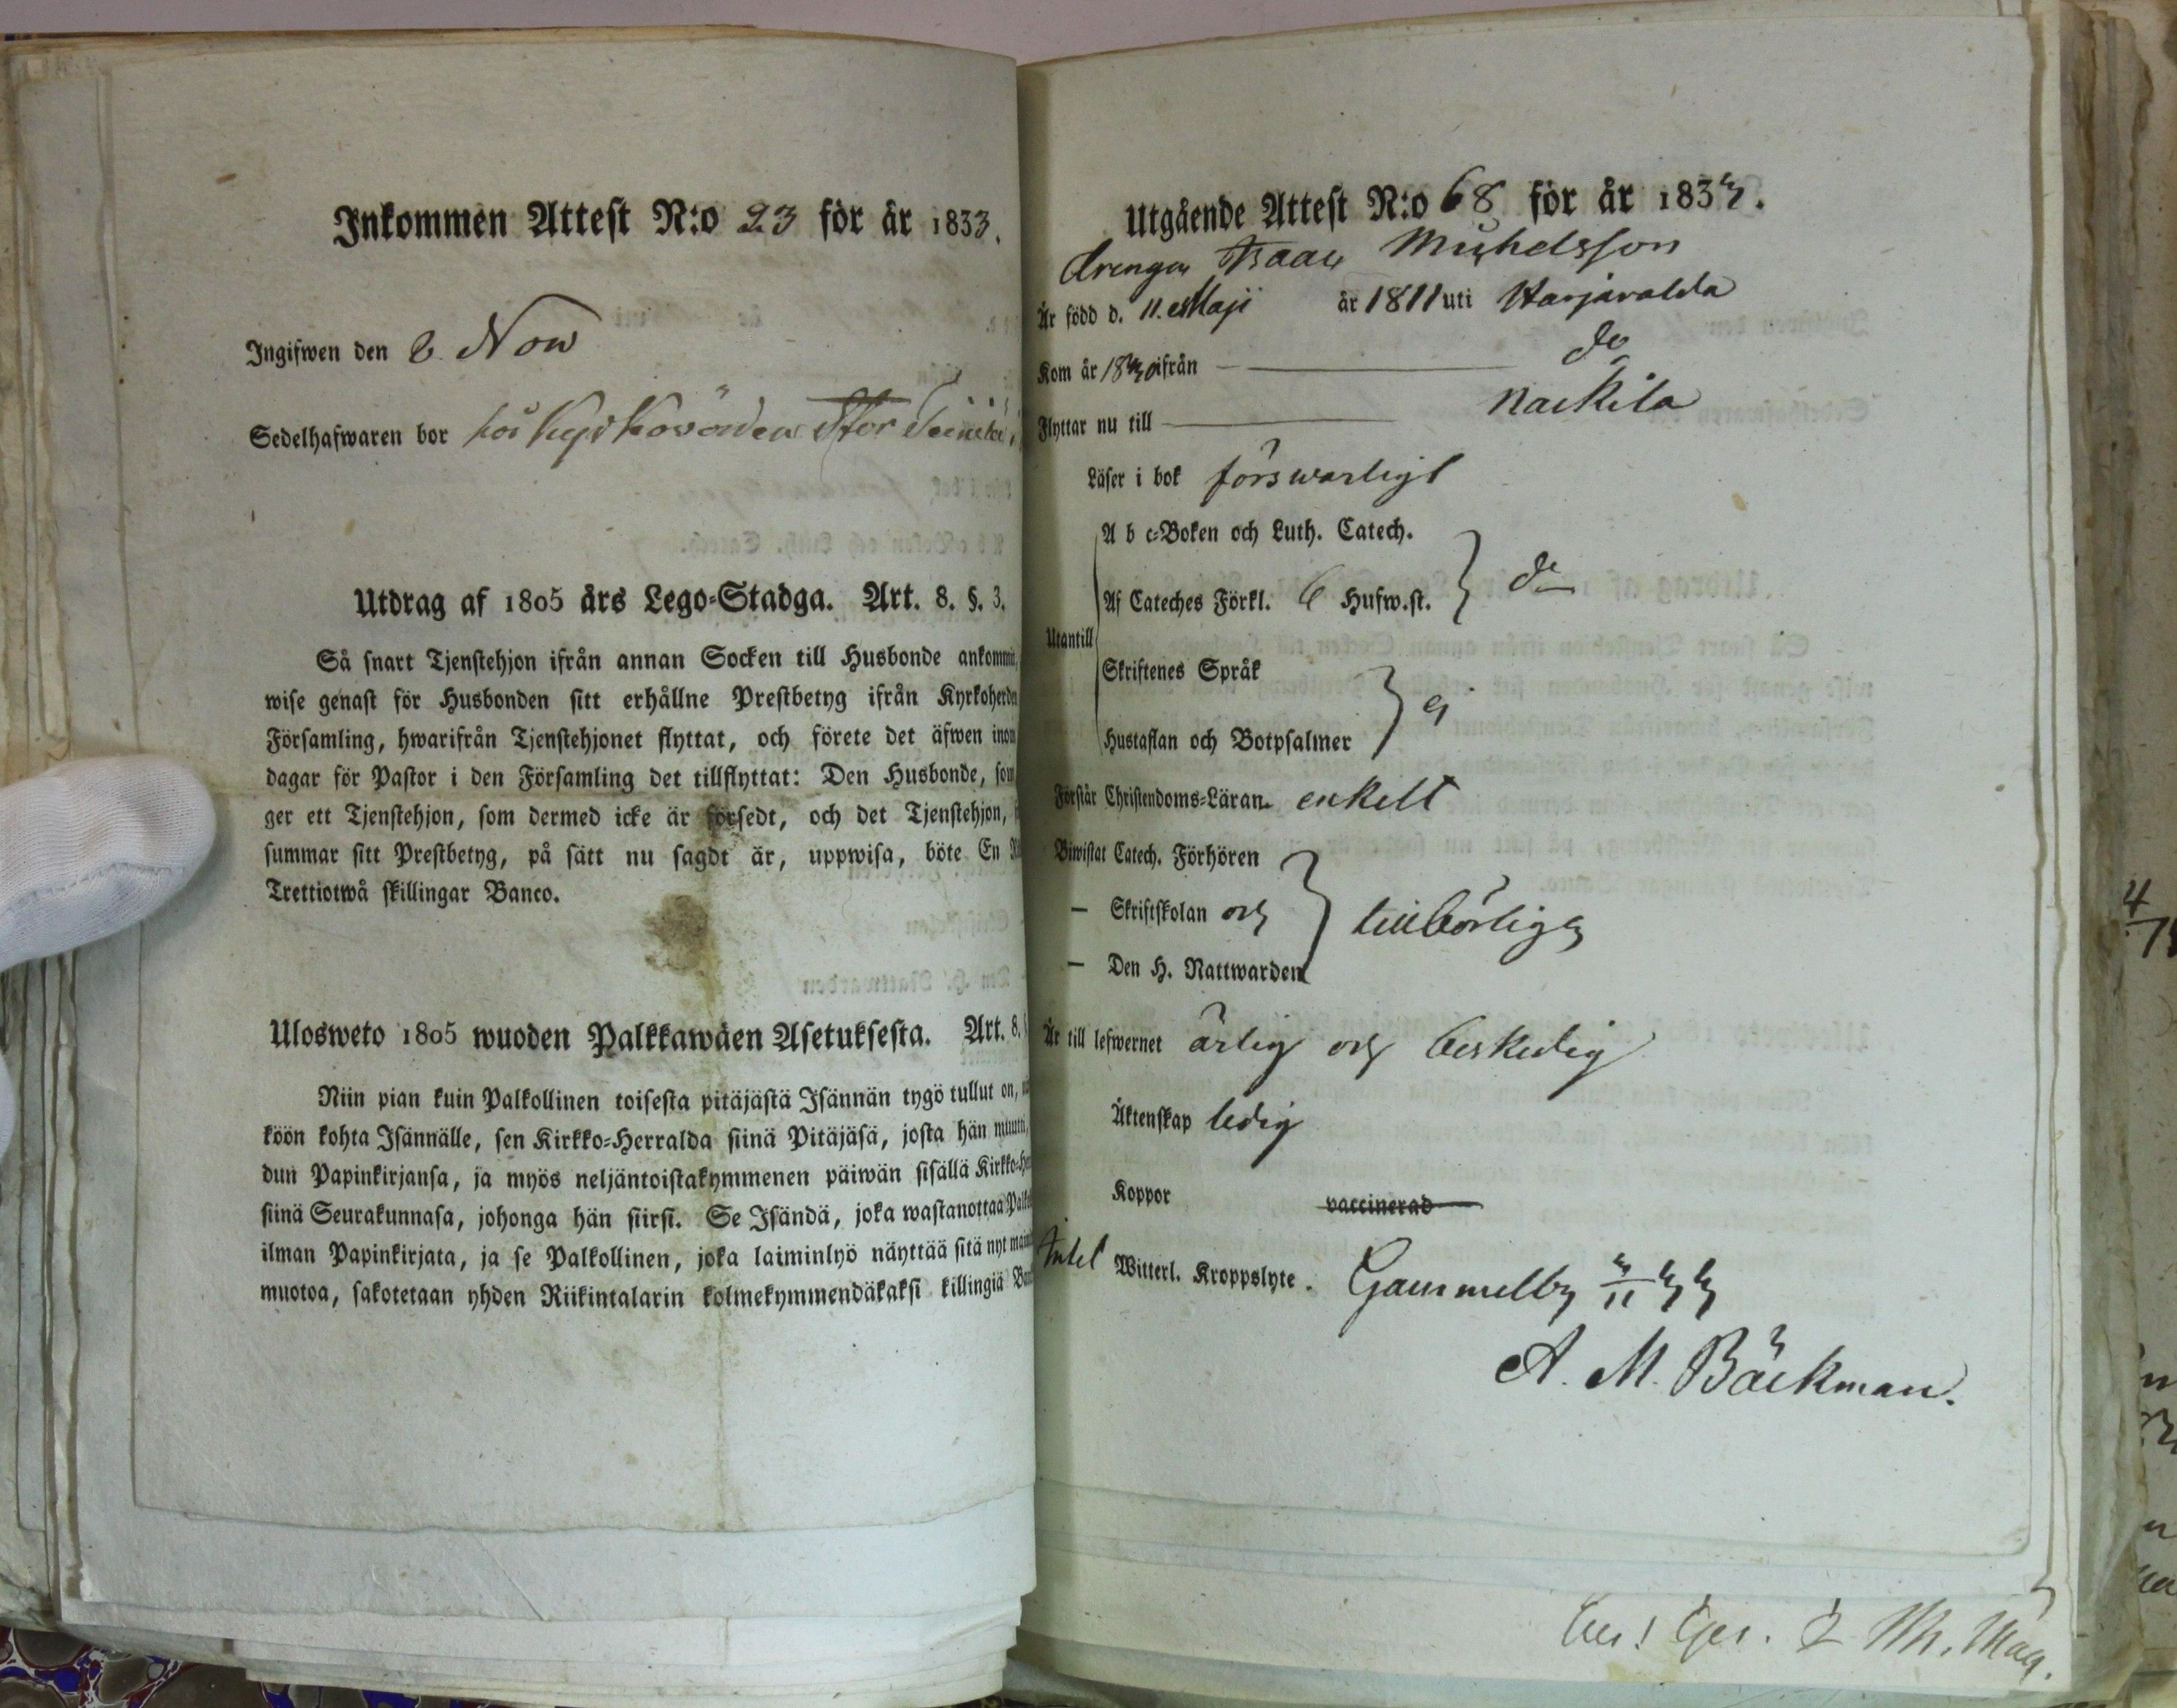 Inkommen Attest N:o 23 för år 1833.
Ingifwen den 8 Nov
Sedelhafwaren bor hos Kyrkovärden Stor
Utdrag af 1805 års Lego-Stadga. Art. 8. §. 3.
Så snart Tjenstehjon ifrån annan Socken till Husbonde ankommit,
wise genast för Husbonden sitt erhållne Prestbetyg ifrån Kyrkoherden
Församling, hwarifrån Tjenstehjonet flyttat, och förete det äfwen inom
dagar för Pastor i den Församling det tillflyttat: Den Husbonde, som
ger ett Tjenstehjon, som dermed icke är försedt, och det Tjenstehjon,
summar sitt Prestbetyg, på sätt nu sagdt är, uppwisa, böte En
Trettiotwå skillingar Banco.
Ulosweto 1805 wuoden Palkkawäen Asetuksesta. Art. 8.
Niin pian kuin Palkollinen toisesta pitäjästä Isännän tygö tullut on,
köön kohta Isännälle, sen Kirkko-Herralda siinä Pitäjäsä, josta hän muutti,
dun Papinkirjansa, ja myös neljäntoistakymmenen päiwän sisällä Kirkko-
siinä Seurakunnasa, johonga hän siirsi. Se Isändä, joka wastanottaa
ilman Papinkirjata, ja se Palkollinen, joka laiminlyö näyttää sitä nyt
muotoa, sakotetaan yhden Riikintalarin kolmekymmendäkaksi killingiä
Utgående Attest N:o 68 för år 1833.
Drengen Isaac Michelsson
Är född d. 11. Maji år 1811 uti Harjavalda
Kom år 1830 ifrån — do
Flyttar nu till — Nackila
Läser i bok förswarligt
A b c-Boken och Luth. Catech.
Af Cateches Förkl. 6 Hufw.st. do
Utantill
Skriftenes Språk
ej
Hustaflan och Botpsalmer
Förstår Christendoms-Läran. enkelt
Biwistat Catech. Förhören
— Skriftskolan och tillbörligen
— Den H. Nattwarden
Är till lefwernet ärlig och beskedlig
Äktenskap ledig
Koppor vaccinerad
Intet Witterl. Kroppslyte. Gammelby 3/11 33
A. M. Bäckman.